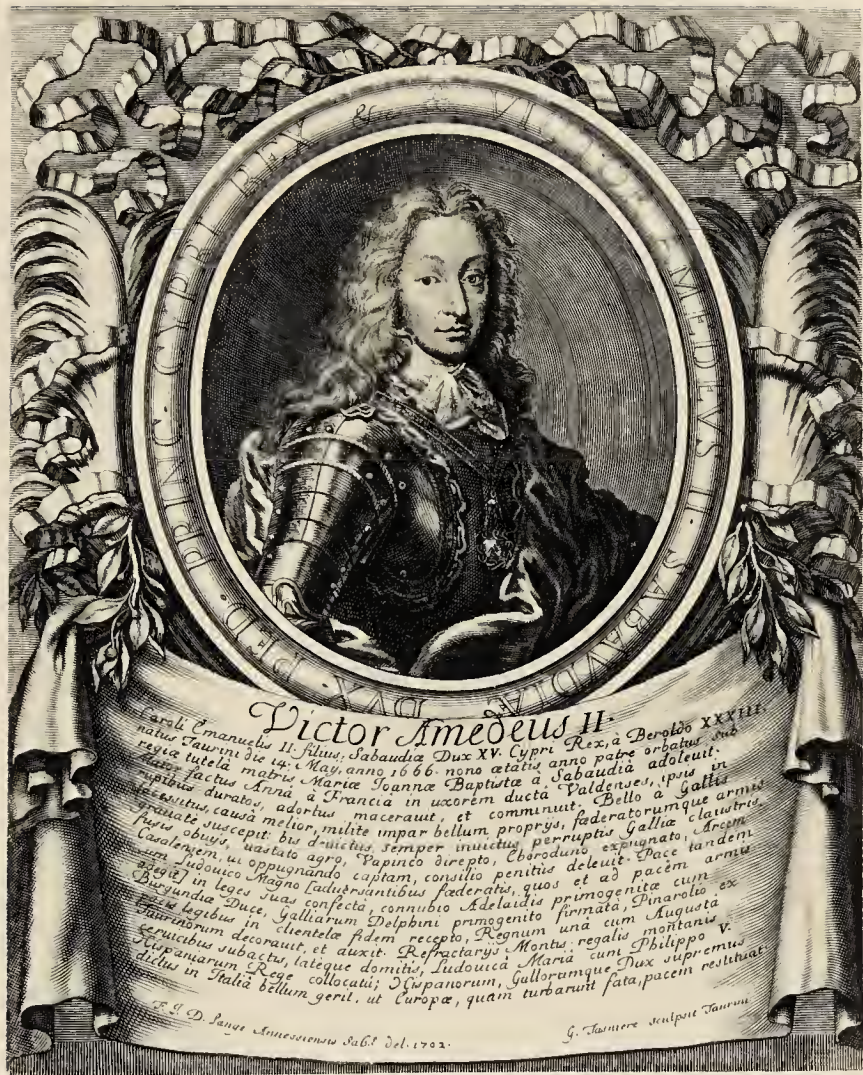 VICTOR AMEDEVS II SABAVDIÆ DUX · PED · PRINC · CYPRI REX &c
Victor Amedeus II.
Caroli Emanuelis II. filius; Sabaudiæ Dux XV. Cypri Rex, à Beroldo XXXIII.
natus Taurini die 14. May, anno 1666. nono ætatis anno patre orbatus sub
regia tutelà matris Mariæ Joannæ Baptistæ à Sabaudià adoleuit.
factus Annà à Francia in uxorem ductà Valdenses, ipsis in
rupibus duratos, adortus macerauit, et comminuit. Bello à Gallis
lacessitus, causà melior, milite impar bellum proprijs, fæderatorumque armis
grauate suscepit: bis deuictus, semper inuictus, perruptis Galliæ claustris,
fusis obuijs, uastato agro, Vapinco direpto, Eboroduno expugnato, Arcem
Casalensem, ui oppugnando captam, consilio penitus deleuit. Pace tandem
cum Ludouico Magno [aduersantibus fæderatis, quos et ad pacem armis
adegit] in leges suas confectà, connubio Adelaidis primogenitæ cum
Burgundiæ Duce, Galliarum Delphini primogenito firmatà, Pinarolio ex
pacis legibus in clientelæ fidem recepto, Regnum unà cum Augustà
Taurinorum decorauit, et auxit. Refractarijs Montis regalis montanis
ceruicibus subactus, latèque domitis, Ludouicà Marià cum Philippo V.
Hispaniarum Rege collocatà; Hispanorum, Gallorumque Dux supremus
dictus in Italià bellum gerit, ut Europæ, quam turbarunt fata, pacem restituat.
F. J. D. Lange Annessiensis Sab.s del. 1702.
G. Tasniere sculpsit Taurini